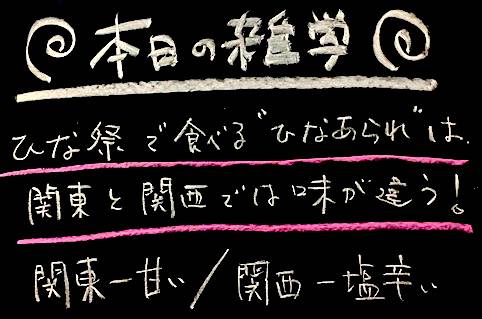 本日の雑学
ひな祭で食べる"ひなあられ"は、
関東と関西では味が違う!
関東ー甘い/関西ー塩辛い